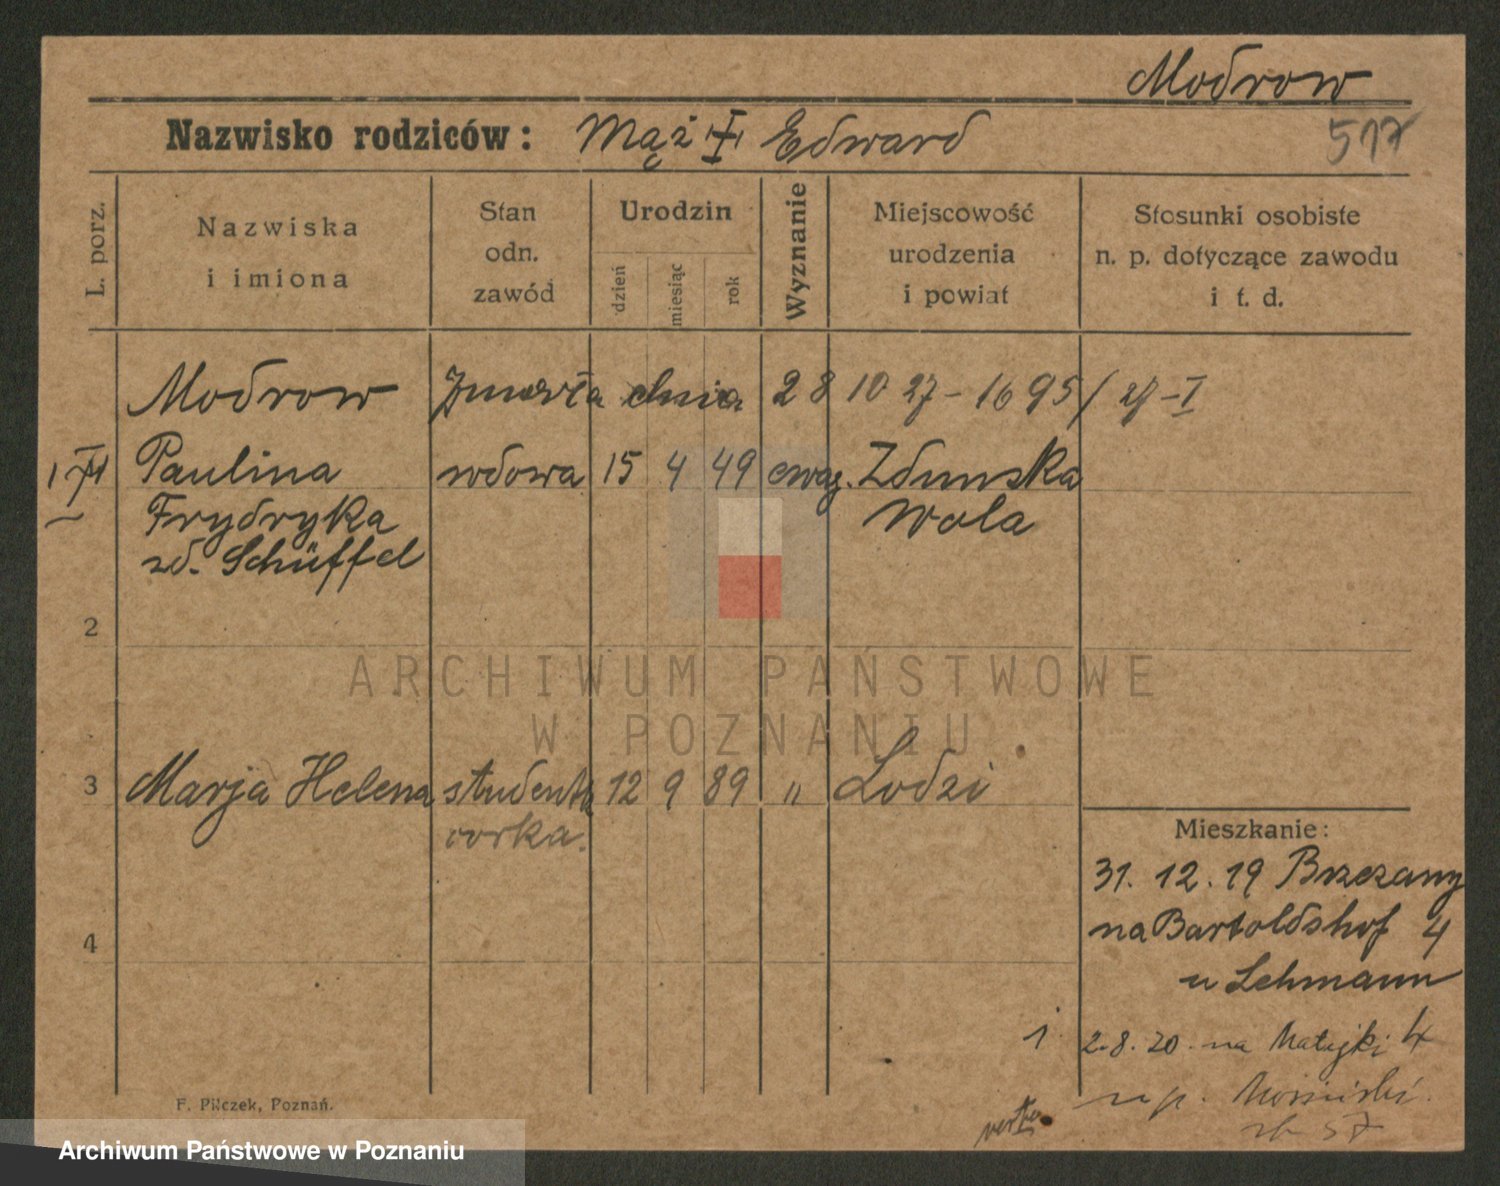 Modrow
Nazwisko rodziców: Mąż † Edward
517
L. porz.
Nazwiska
i imiona
Stan
odn.
zawód
Urodzin
dzień
miesiąc
rok
Wyznanie
Miejscowość
urodzenia
i powiat
Stosunki osobiste
n. p. dotyczące zawodu
i t. d.
Modrow Zmarła dnia 28 10 27 - 1695/27-I
1 † Paulina wdowa 15 4 49 ewag. Zdunska
Frydryka Wola
zd. Schüffel
2
ARCHIWUM PAŃSTWOWE
W POZNANIU
3 Marja Helena studentka 12 9 89 " Lodzi
corka.
Mieszkanie:
31. 12. 19 Brzezany
na Bartoldshof 4
u Lehmann
4
1. 2.8.20. na Matejki
F. Pilczek, Poznań.
verte
Archiwum Państwowe w Poznaniu